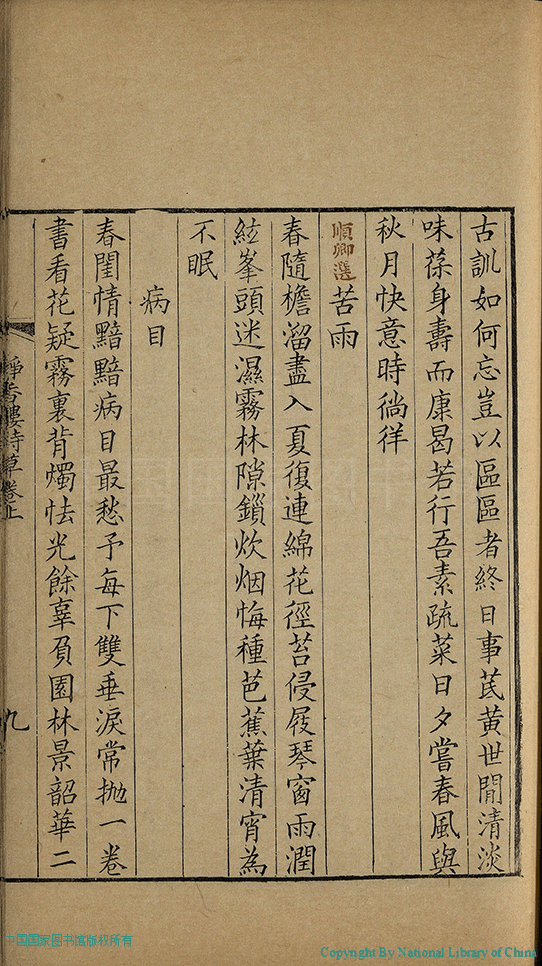 古訓如何忘豈以區區者終日事芪黃世間清淡
味葆身壽而康曷若行吾素疏菜日夕嘗春風與
秋月快意時徜徉
順卿選 苦雨
春隨檐溜盡入夏復連綿花徑苔侵屐琴窗雨潤
絃峯頭迷濕霧林隙鎖炊烟悔種芭蕉葉清宵為
不眠
病目
春閨情黯黯病目最愁予每下雙垂淚常拋一卷
書看花疑霧裏背燭怯光餘辜負園林景韶華二
靜香樓詩草卷上 九
中国国家图书馆版权所有
Copyright By National Library of China